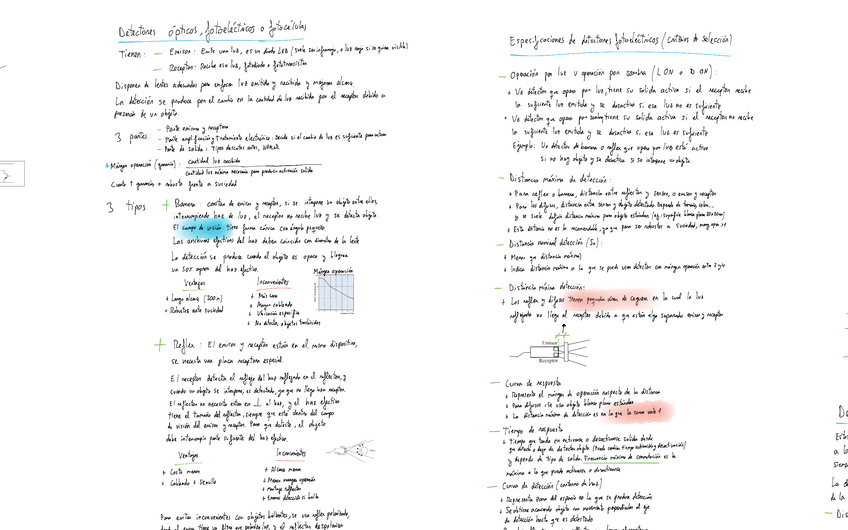 Detectores ópticos, fotoeléctricos o fotocélulas
Tienen: — Emisor: Emite una luz, es un diodo LED (suele ser infrarrojo, o luz roja si se quiere visible)
— Receptor: Recibe esa luz, fotodiodo o fototransistor
Disponen de lentes adecuadas para enfocar luz emitida y recibida y mejorar alcance
La detección se produce por el cambio en la cantidad de luz recibida por el receptor debido a
presencia de un objeto.
3 partes: — Parte emisora y receptora
— Parte amplificación y tratamiento electrónico: Decide si el cambio de luz es suficiente para activar
— Parte de salida:
+ Margen operación (ganancia): cantidad luz recibida
cantidad luz mínima necesaria para produzca activación salida
Cuanto ↑ ganancia + robusto frente a suciedad
3 tipos + Barrera: consta de emisor y receptor, si se interpone un objeto entre ellos
interrumpiendo haz de luz, el receptor no recibe luz y se detecta objeto
El campo de visión tiene forma cónica con ángulo pequeño.
Las anchuras efectivas del haz deben coincidir con diámetro de la lente
La detección se produce cuando el objeto es opaco y bloquea
un 50% aprox del haz efectivo.
Ventajas Inconvenientes Margen operación
+ Largo alcance (200m) + Más caro
+ Robustos ante suciedad + Mayor cableado
+ Ubicación específica
+ No detectan objetos translúcidos
+ Reflex: El emisor y receptor están en el mismo dispositivo,
se necesita una placa receptora especial.
El receptor detecta el reflejo del haz reflejado en el reflector, y
cuando un objeto se interpone, es detectado, ya que no llega haz a receptor.
El reflector no necesita estar en ⊥ al haz, y el haz efectivo
tiene el tamaño del reflector, siempre que esté dentro del campo
de visión del emisor y receptor. Para que detecte, el objeto
debe interrumpir parte suficiente del haz efectivo.
Ventajas Inconvenientes
+ Coste menor + Alcance menor
+ Cableado + sencillo + Menor margen operación
+ Montaje reflector
+ Errores detección si brilla
Para evitar inconvenientes con objetos brillantes, se usa reflex polarizado,
Especificaciones de detectores fotoeléctricos (criterios de selección)
— Operación por luz u operación por sombra (L.ON o D.ON):
+ Un detector que opera por luz, tiene su salida activa si el receptor recibe
la suficiente luz emitida y se desactiva si esa luz no es suficiente
• Un detector que opera por sombra tiene su salida activa si el receptor no recibe
la suficiente luz emitida y se desactiva si es suficiente.
Ejemplo: Un detector de barrera o reflex que opera por luz está activo
si no hay objeto y se desactiva si se interpone un objeto.
— Distancia máxima de detección:
+ Para reflex o barrera, distancia entre reflector y sensor, o emisor y receptor
+ Para los difusos, distancia entre sensor y objeto detectado. Depende de tamaño, color...
+ Esta distancia no es la recomendable, ya que para ser robustos a suciedad,
— Distancia nominal detección (Sn):
+ Menor que distancia máxima
+ Indica distancia máxima a la que se puede usar detector con margen operación entre 2 y 10
— Distancia mínima detección:
+ Los reflex y difusos tienen pequeña área de ceguera en la cual la luz
reflejada no llega al receptor debido a que están algo separados emisor y receptor
Emisor
Receptor
— Curva de respuesta
+ Representa el margen de operación respecto de la distancia
+ Para difusos se usa objeto blanco plano estándar
+ La distancia máxima de detección es en la que la curva vale 1
— Tiempo de respuesta
+ Tiempo que tarda en activarse o desactivarse salida desde
que detecta o deja de detectar objeto (Puede cambiar tiempo activación y desactivación)
y depende de tipo de salida. Frecuencia máxima de conmutación es la
máxima a la que puede activarse o desactivarse
— Curva de detección (contorno de haz)
+ Representa zona del espacio en la que se produce detección
+ Se obtiene acercando objeto con movimiento perpendicular al eje
de detección hasta que es detectado